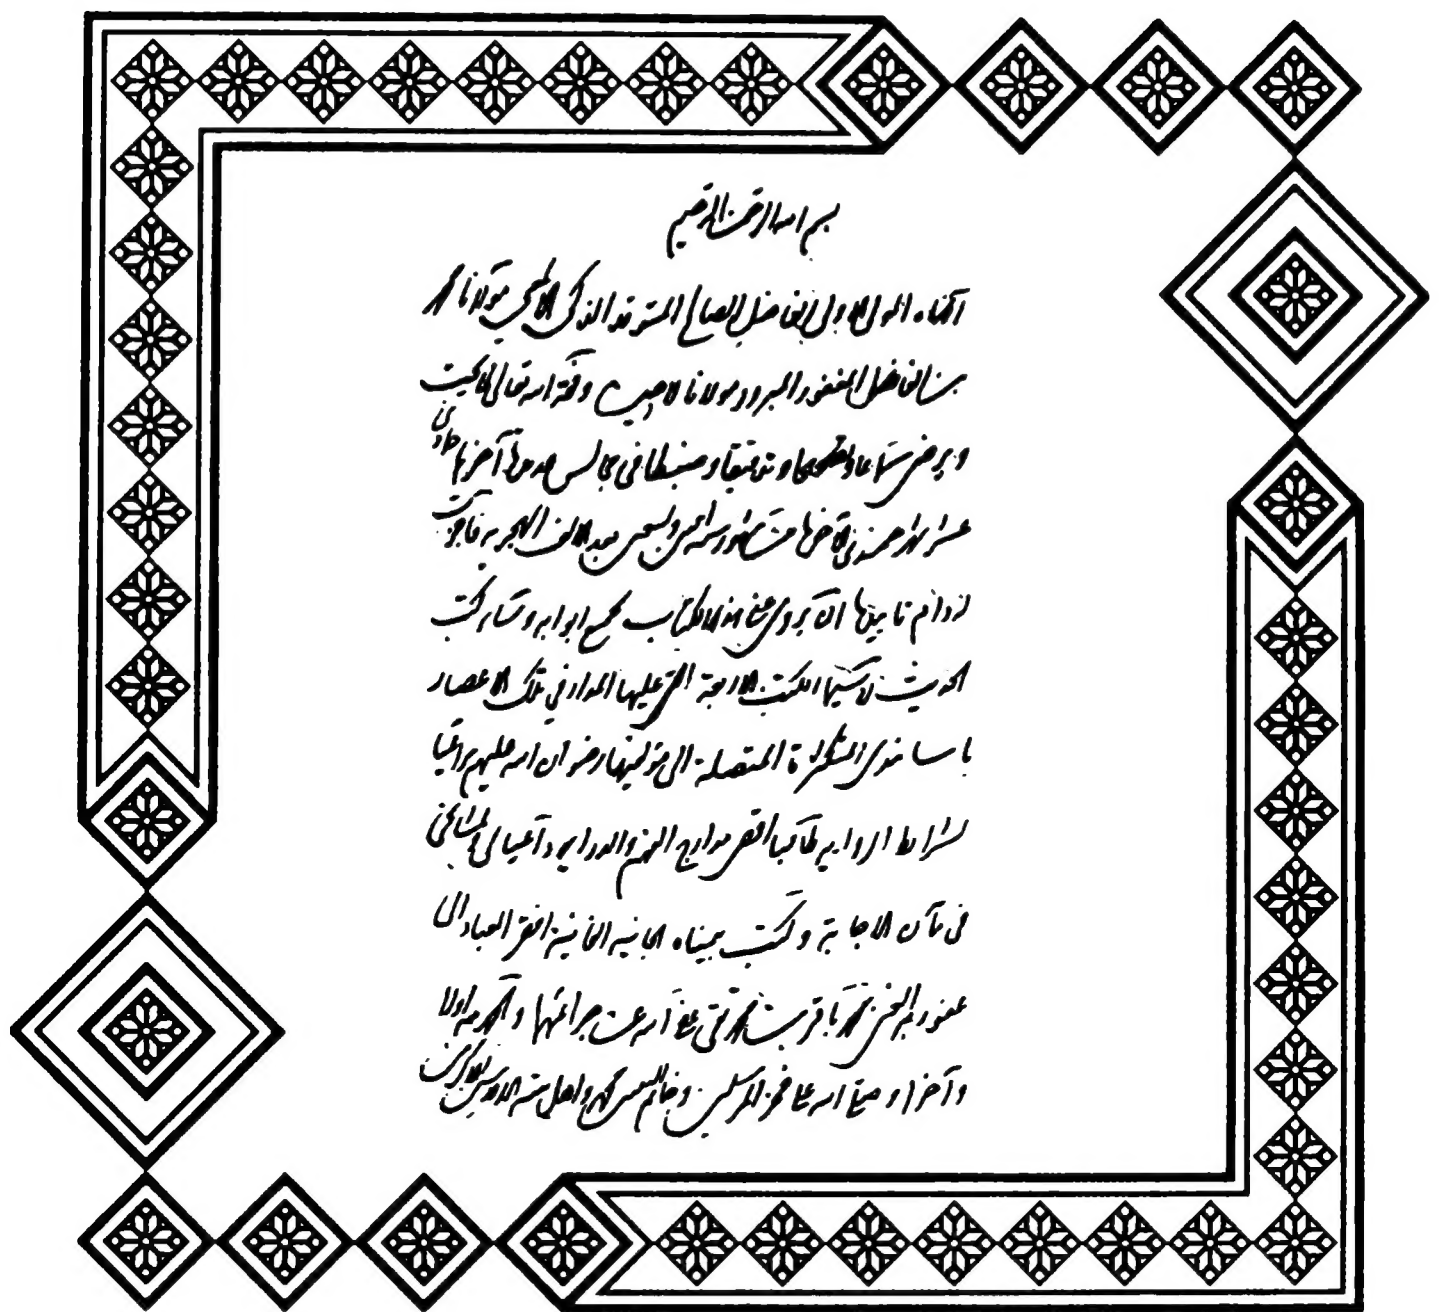 بسم الله الرحمن الرحيم
أنهاه المولى الأولى الفاضل الصالح المتوقد الذكي الألمعي مولانا محمد
بن الفاضل المغفور المبرور مولانا وفقه الله تعالى لما يحب
ويرضى سماعا وتصحيحا وتدقيقا وضبطا في مجالس آخرها حادي
عشر شهر من شهور سنة وسبعين بعد الألف الهجرية فأجزت
له دام تأييده أن يروي عني هذا الكتاب بجميع أبوابه وسائر كتب
الحديث لا سيما الكتب الأربعة التي عليها المدار في تلك الأعصار
بأسانيدي المتكثرة المتصلة إلى مؤلفيها رضوان الله عليهم مراعيا
لشرائط الرواية طالبا أقصى مدارج الفهم والدراية داعيا لي ولمشايخي
في مآن الإجابة وكتب بيمناه الجانية الفانية أفقر العباد إلى
عفو ربه الغني محمد باقر بن محمد تقي عفا الله عن جرائمهما والحمد لله أولا
وآخرا وصلى الله على فخر المرسلين وخاتم النبيين محمد وأهل بيته الأقدسين الأكرمين